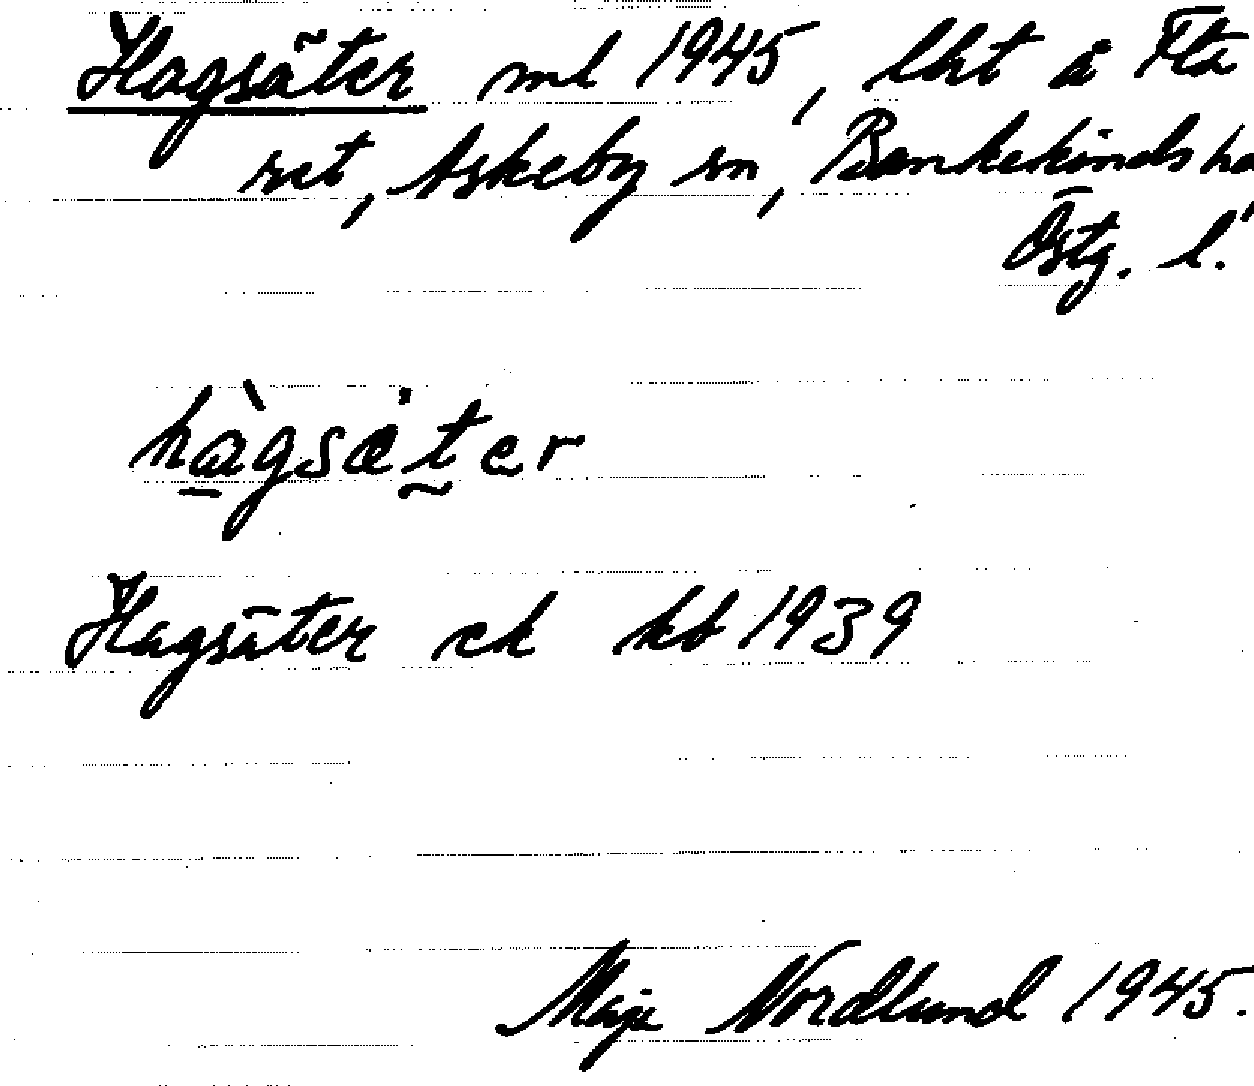 Hagsäter ml 1945, lht å Fla
ret, Askeby sn, Bankekinds h
Östg. l.
hàgsäter
Hagsäter ek kb 1939
Maja Nordlund 1945.